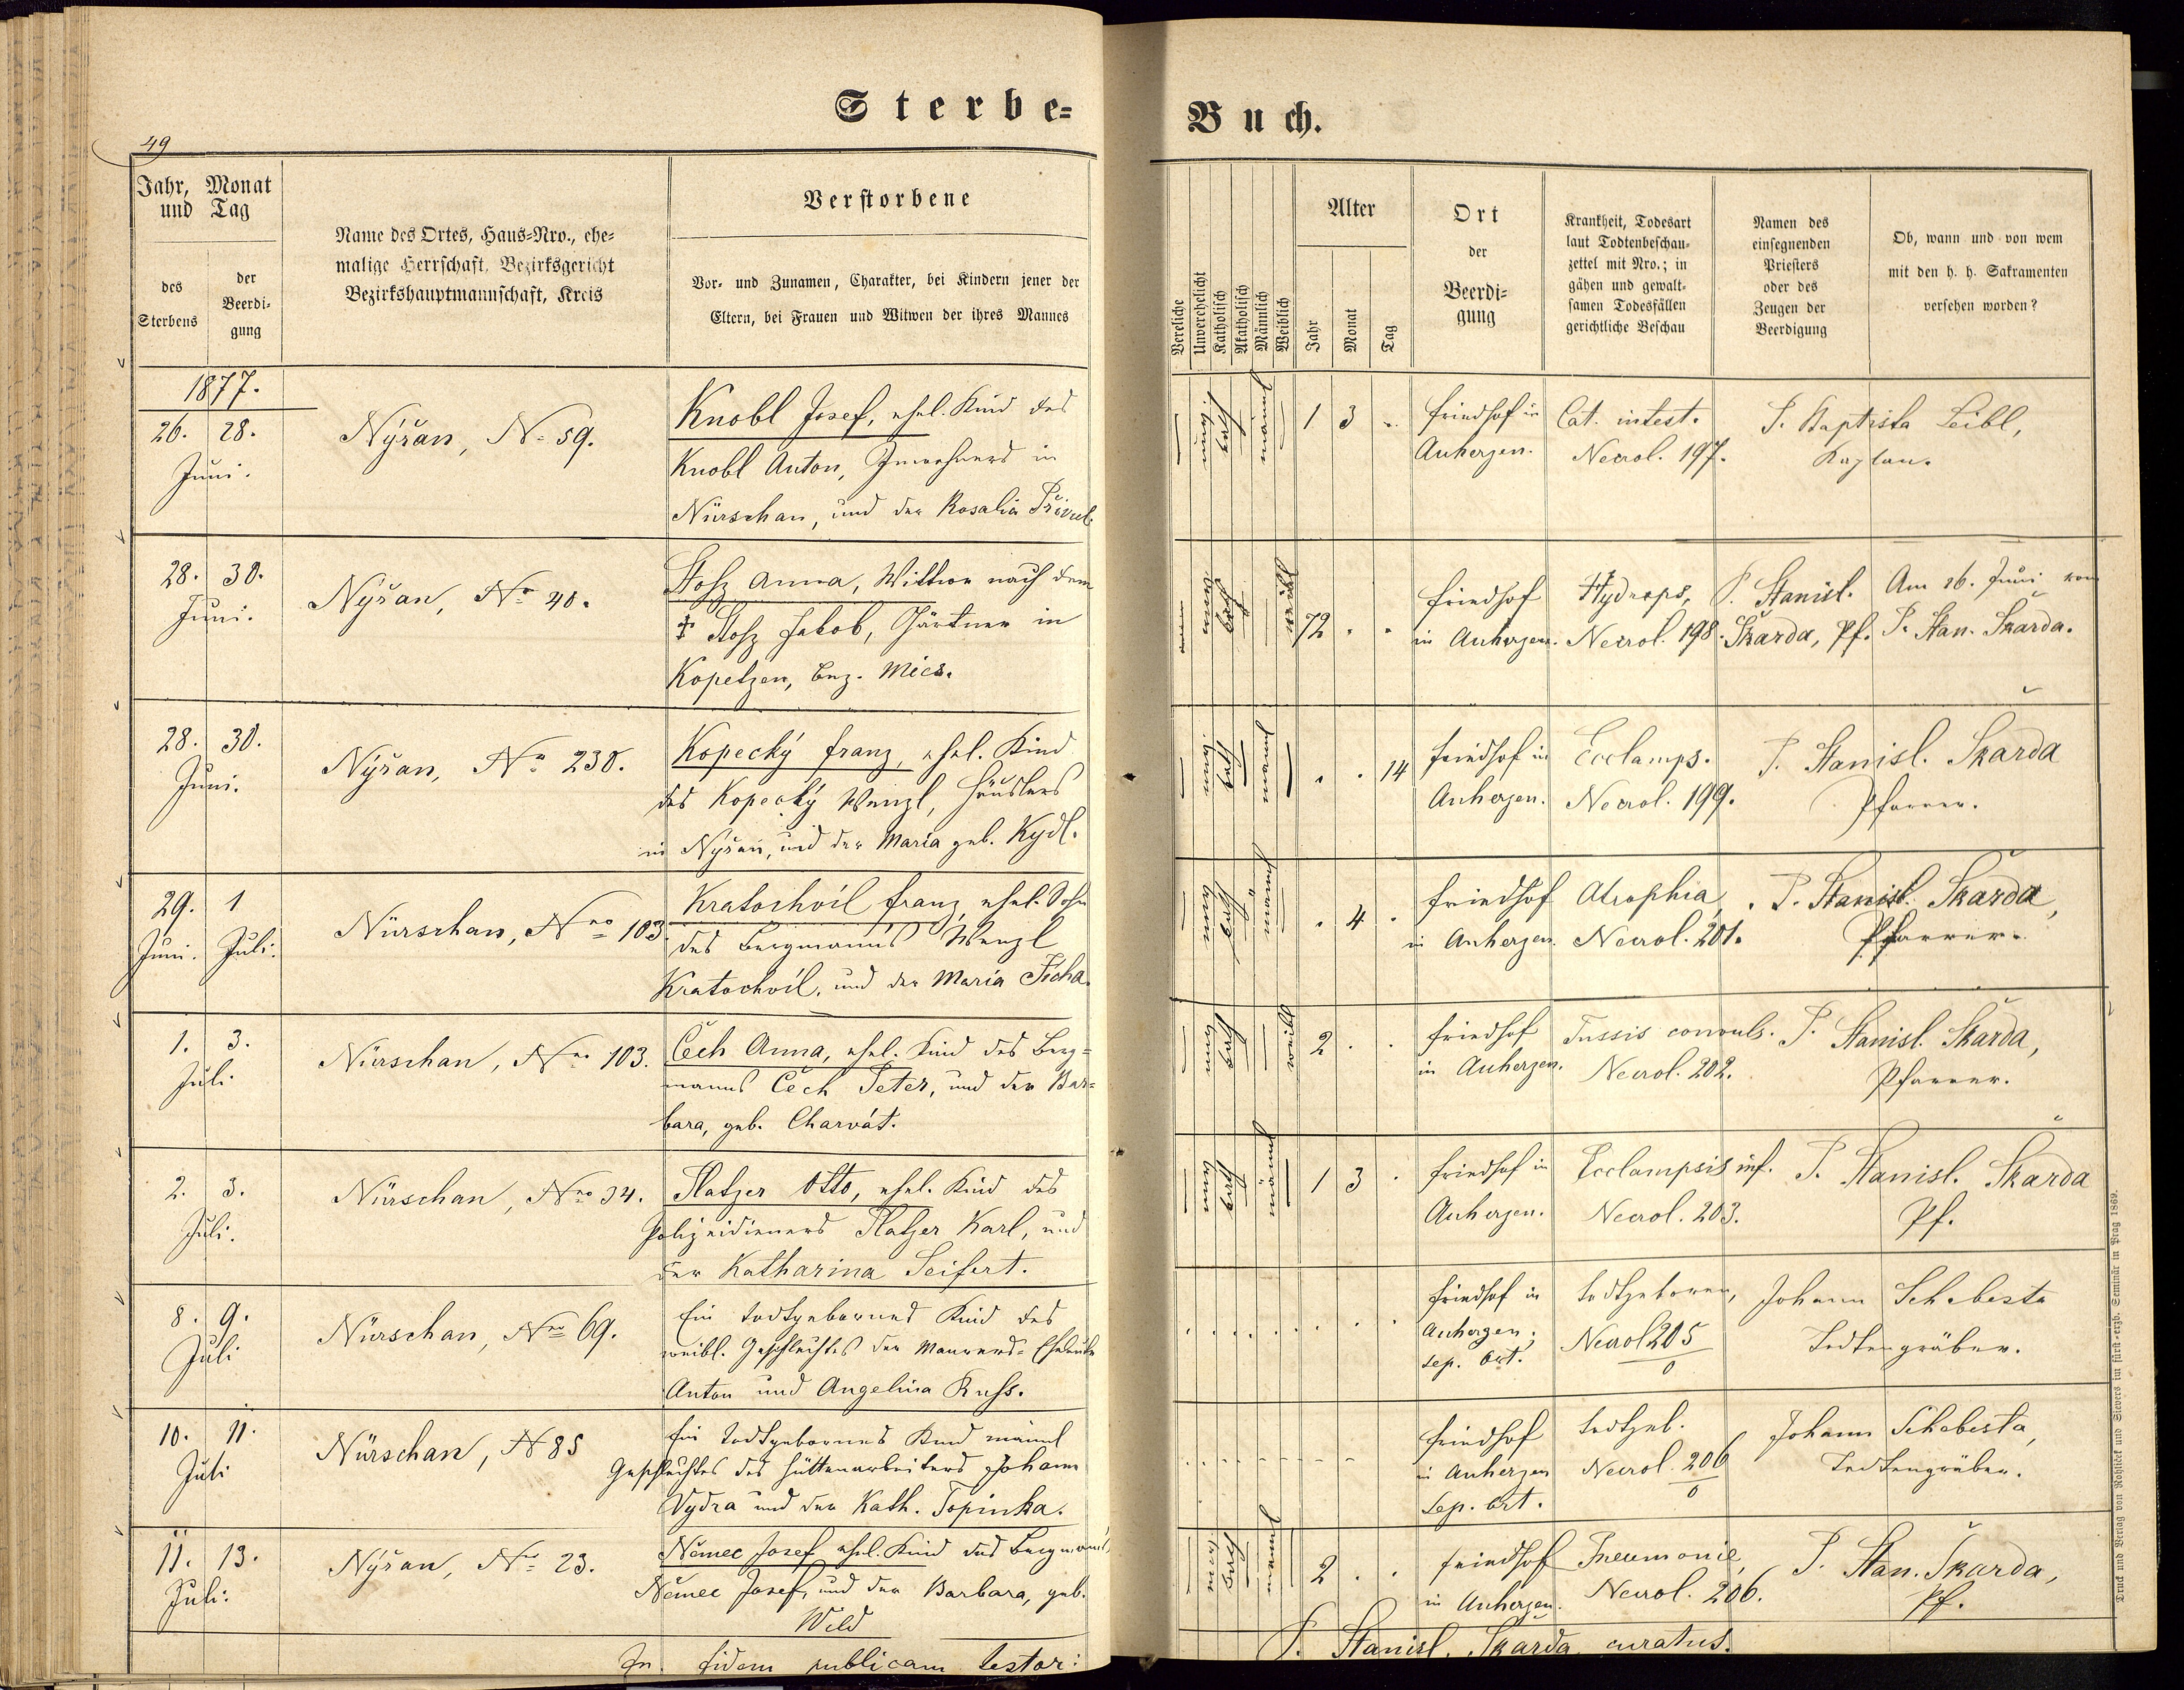 Sterbe=
Buch.
49
Jahr, Monat
und Tag
des
Sterbens
der
Beerdi-
gung
Name des Ortes, Haus=Nro., ehe=
malige Herrschaft, Bezirksgericht
Bezirkshauptmannschaft, Kreis
Verstorbene
Vor= und Zunamen, Charakter, bei Kindern jener der
Eltern, bei Frauen und Witwen der ihres Mannes
Vereliche
Unverehelicht
Katholisch
Akatholisch
Männlich
Weiblich
Alter
Jahr
Monat
Tag
Ort
der
Beerdi=
gung
Krankheit, Todesart
laut Todtenbeschau=
zettel mit Nro.; in
gähen und gewalt=
samen Todesfällen
gerichtliche Beschau
Namen des
einsegnenden
Priesters
oder des
Zeugen der
Beerdigung
Ob, wann und von wem
mit den h. h. Sakramenten
versehen worden?
1877.
26. 28.
Juni.
Nýřan, N= 59.
Knobl Josef, ehel. Kind des
Knobl Anton, Inwohners in
Nürschan, und der Rosalia
1 3
Friedhof in
Auherzen.
Cat. intest.
Necrol. 197.
P. Baptista Leibl,
Kaplan.
28. 30.
Juni.
Nýřan, Nro 40.
Stosz Anna, Wittwe nach dem
† Stosz Jakob, Gärtner in
Kopetzen, Bez. Mies.
72 . .
Friedhof
in Auherzen.
Hydrops,
Necrol. 198.
P. Stanisl.
Škarda, Pf.
Am 26. Juni von
P. Stan. Škarda.
28. 30.
Juni.
Nýřan, Nro 230.
Kopecký Franz, ehel. Kind
des Kopecký Wenzl, Häuslers
in Nýřan, und der Maria geb. Kydl.
. . 14
Friedhof in
Auherzen.
Ecclamps.
Necrol. 199.
P. Stanisl. Škarda
Pfarrer.
29. 1
Juni. Juli.
Nürschan, Nro 103
Kratochvil Franz, ehel. Sohn
des Bergmanns Wenzl
Kratochvil, und der Maria Ficha.
. 4 .
Friedhof
in Auherzen.
Atrophia,
Necrol. 201.
P. Stanisl. Škarda,
Pfarrer.
1. 3.
Juli.
Nürschan, Nro 103.
Čech Anna, ehel. Kind des Berg=
manns Čech Peter, und der Bar=
bara, geb. Charvát.
2 . .
Friedhof
in Auherzen.
Tussis convuls.
Necrol. 202.
P. Stanisl. Škarda,
Pfarrer.
2. 3.
Juli.
Nürschan, Nro 34.
Platzer Otto, ehel. Kind des
Polizeidieners Platzer Karl, und
der Katharina Seifert.
1 3 .
Friedhof in
Auherzen.
Ecclampsis inf.
Necrol. 203.
P. Stanisl. Škarda
Pf.
8. 9.
Juli
Nürschan, Nro 69.
Ein todtgebornes Kind des
weibl. Geschlechtes der Maurers=Eheleute
Anton und Angelina Russ.
Friedhof in
Auherzen;
sep. Ort.
todtgeboren,
Necrol 205
0
Johann Schebesta
Todtengräber.
10. 11.
Juli
Nürschan, N 85
Ein todtgebornes Kind männl
Geschlechtes des Hüttenarbeiters Johann
Vydra und der Kath. Topinka.
Friedhof
in Auherzen
Sep. Ort.
todtgeb.
Necrol. 206
0
Johann Schebesta,
Todtengräber.
11. 13.
Juli.
Nýřan, Nro 23.
Němec Josef ehel. Kind des Bergmanns
Němec Josef, und der Barbara, geb.
Wild
2 . .
Friedhof
in Auherzen.
Pneumonie,
Necrol. 206.
P. Stan. Škarda,
Pf.
In fidem publicam testor:
P. Stanisl. Škarda curatus.
Druck und Verlag von Rohliček und Sievers im fürst=erzb. Seminär in Prag 1869.